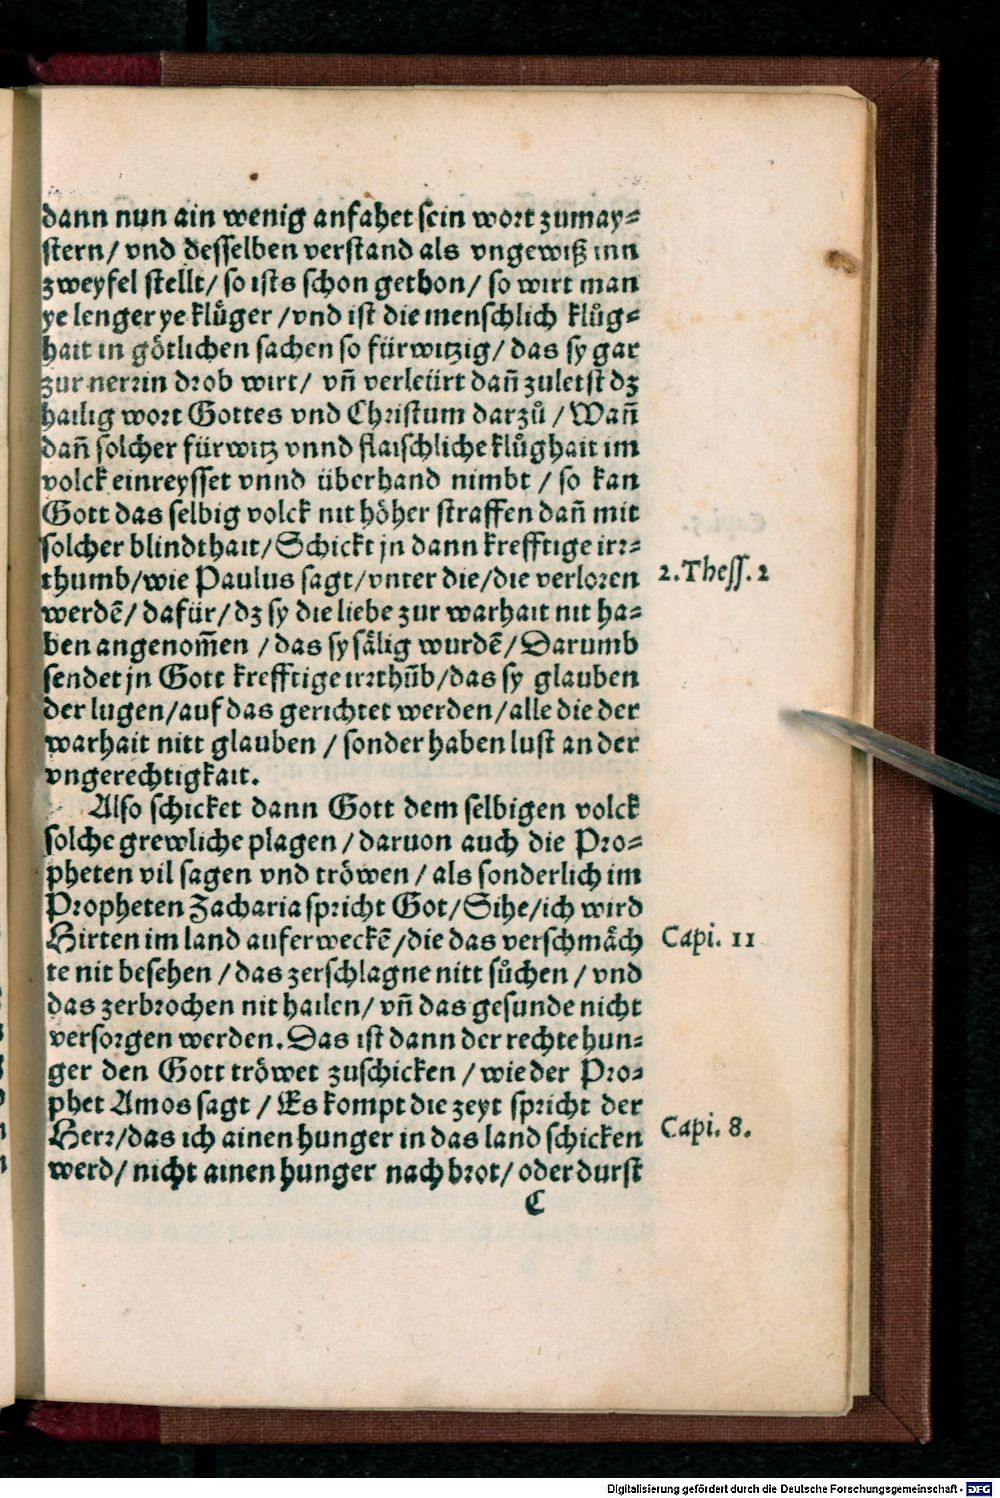 dann nun ain wenig anfahet sein wort zumay⸗
stern/ vnd desselben verstand als vngewiß inn
zweyfel stellt/ so ists schon gethon/ so wirt man
ye lenger ye klůger /vnd ist die menschlich klůg⸗
hait in götlichen sachen so fürwitzig/ das sy gar
zur nerrin drob wirt/ vñ verleürt dañ zuletst dz
hailig wort Gottes vnd Christum darzů /Wañ
dañ solcher fürwitz vnnd flaischliche klůghait im
volck einreysset vnnd überhand nimbt / so kan
Gott das selbig volck nit höher straffen dañ mit
solcher blindthait/Schickt jn dann krefftige irr⸗
thumb/wie Paulus sagt/vnter die/die verloren
werdẽ/ dafür/dz sy die liebe zur warhait nit ha⸗
ben angenom̃en /das sy sålig wurdẽ/Darumb
sendet jn Gott krefftige irrthũb/das sy glauben
der lugen/auf das gerichtet werden/alle die der
warhait nitt glauben /sonder haben lust an der
vngerechtigkait.
Also schicket dann Gott dem selbigen volck
solche grewliche plagen /daruon auch die Pro⸗
pheten vil sagen vnd tröwen /als sonderlich im
Propheten Zacharia spricht Got/Sihe/ich wird
Hirten im land auferweckẽ/die das verschmåch
te nit besehen /das zerschlagne nitt sůchen /vnd
das zerbrochen nit hailen/ vñ das gesunde nicht
versorgen werden.Das ist dann der rechte hun⸗
ger den Gott tröwet zuschicken /wie der Pro⸗
phet Amos sagt /Es kompt die zeyt spricht der
Herr/das ich ainen hunger in das land schicken
werd/ nicht ainen hunger nach brot/oder durst
C
2.Thess.2
Capi. 11
Capi. 8.
Digitalisierung gefördert durch die Deutsche Forschungsgemeinschaft - DFG